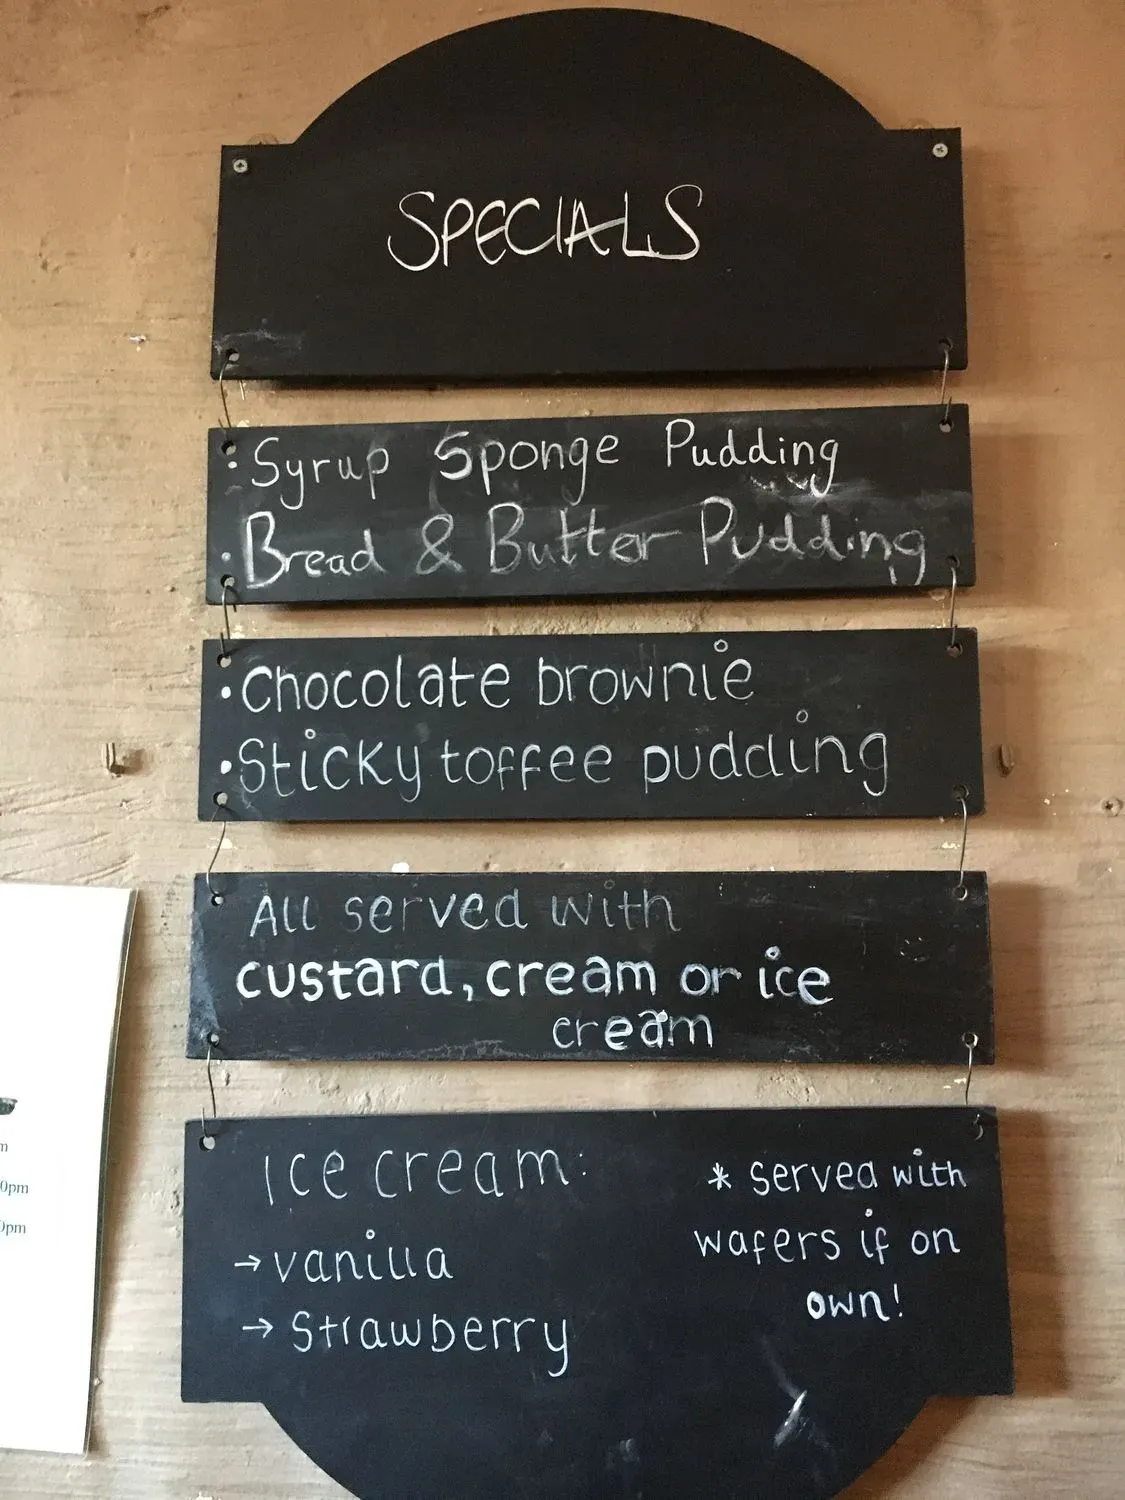 SPECIALS
• Syrup Sponge Pudding
• Bread & Butter Pudding
• Chocolate brownie
• Sticky toffee pudding
All served with
custard, cream or ice
cream
Ice cream:
→ vanilla
→ Strawberry
* served with
wafers if on
own!
0pm
0pm